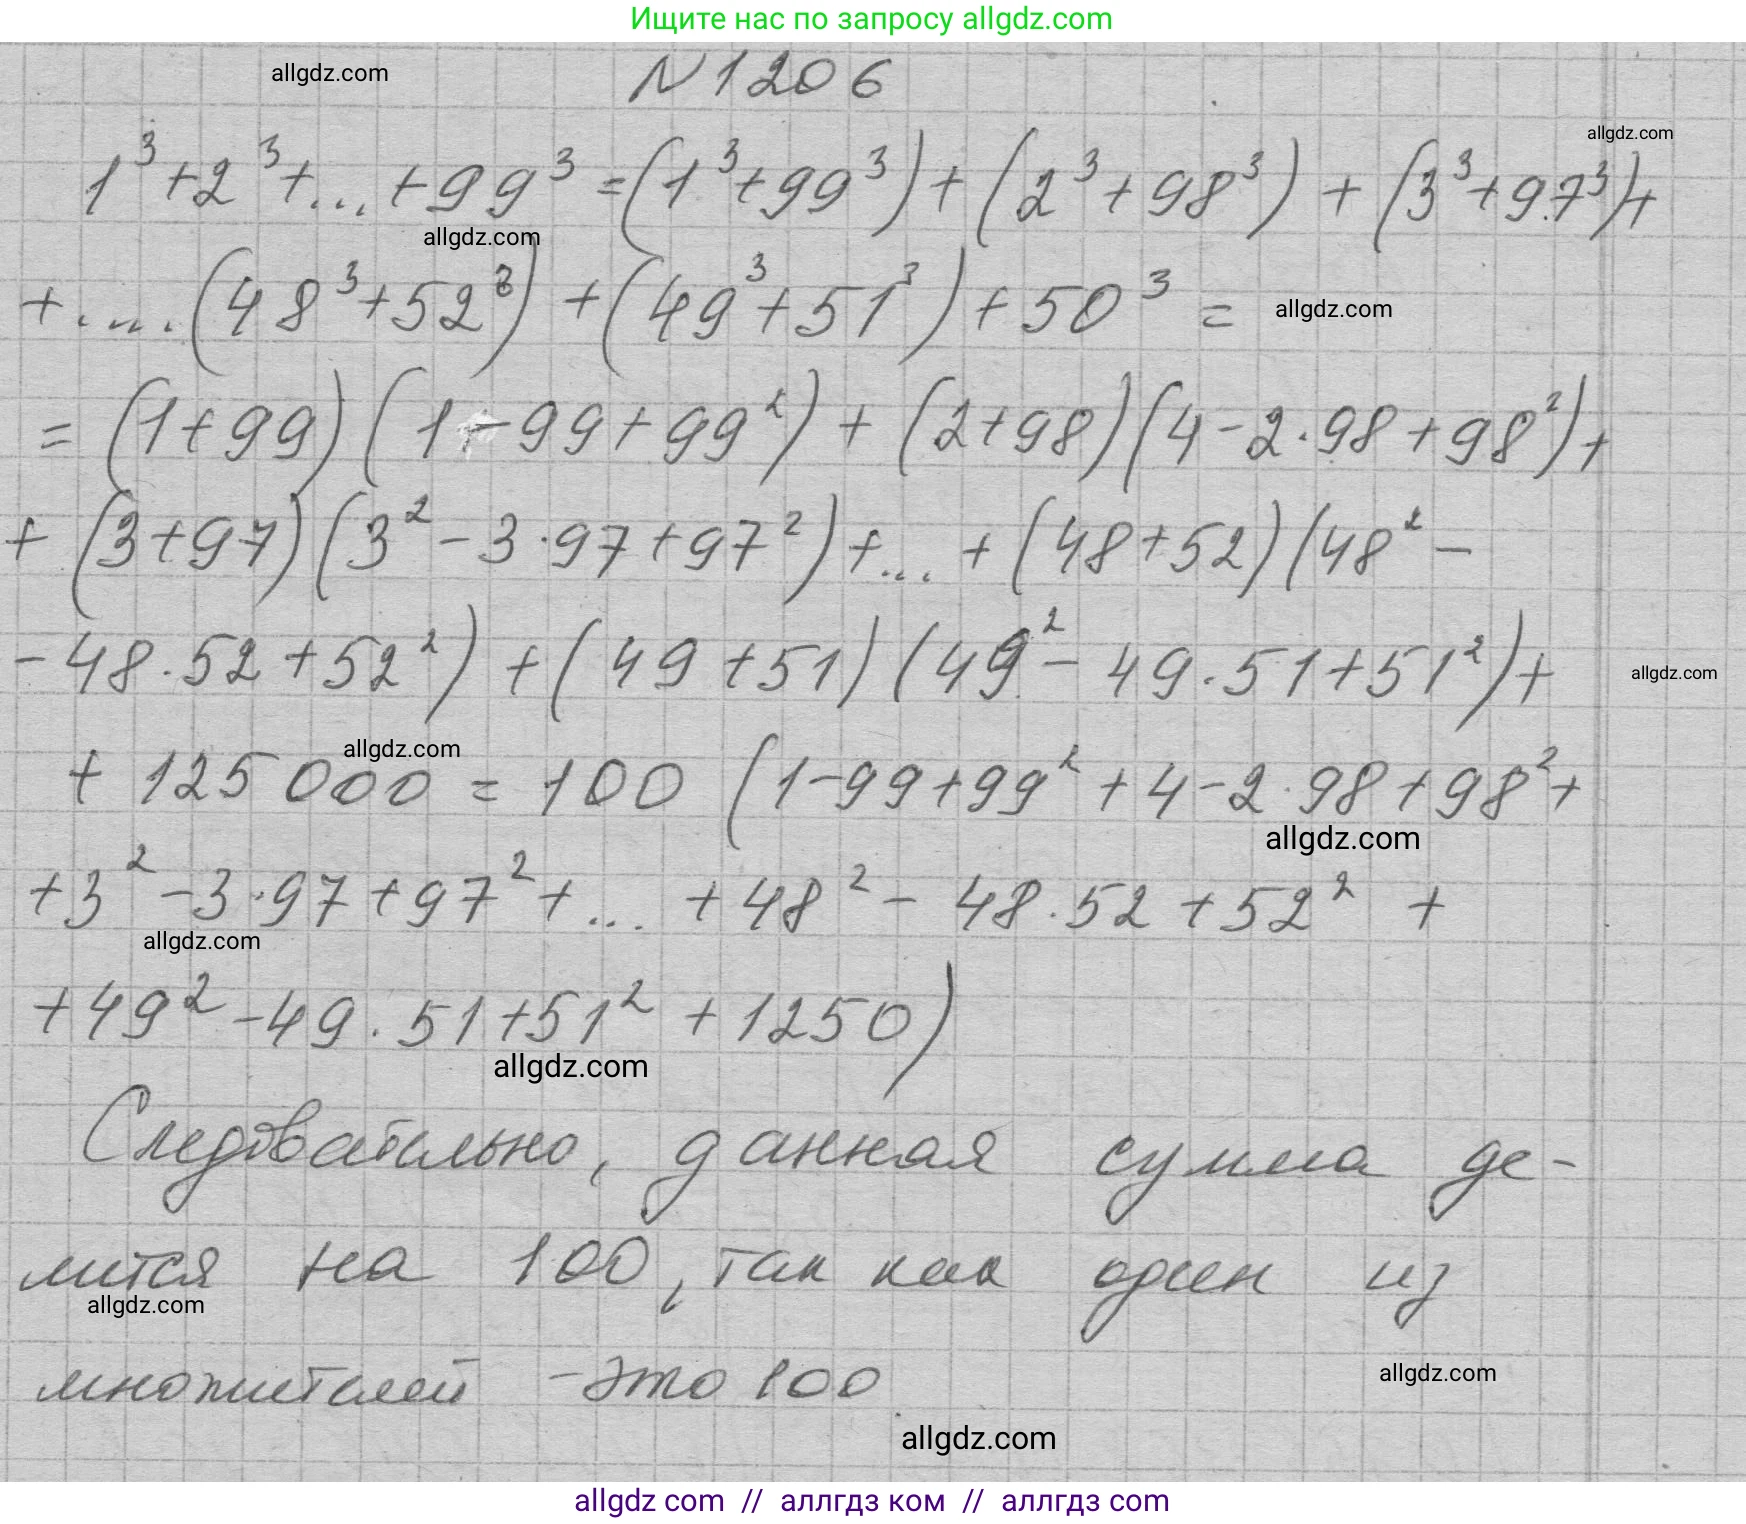 Ищите нас по запросу allgdz.com
allgdz.com
N 1206
allgdz.com
1³+2³+...+99³=(1³+99³)+(2³+98³)+(3³+97³)+
allgdz.com
+....(48³+52³)+(49³+51³)+50³=
allgdz.com
=(1+99)(1-99+99²)+(2+98)(4-2·98+98²)+
+(3+97)(3²-3·97+97²)+...+(48+52)(48²-
-48·52+52²)+(49+51)(49²-49·51+51²)+
allgdz.com
allgdz.com
+125000=100(1-99+99²+4-2·98+98²+
allgdz.com
+3²-3·97+97²+...+48²-48·52+52²+
allgdz.com
+49²-49·51+51²+1250)
allgdz.com
Следовательно, данная сумма де-
лится на 100, так как один из
allgdz.com
множителей - это 100
allgdz.com
allgdz.com
allgdz com // аллгдз ком // аллгдз com